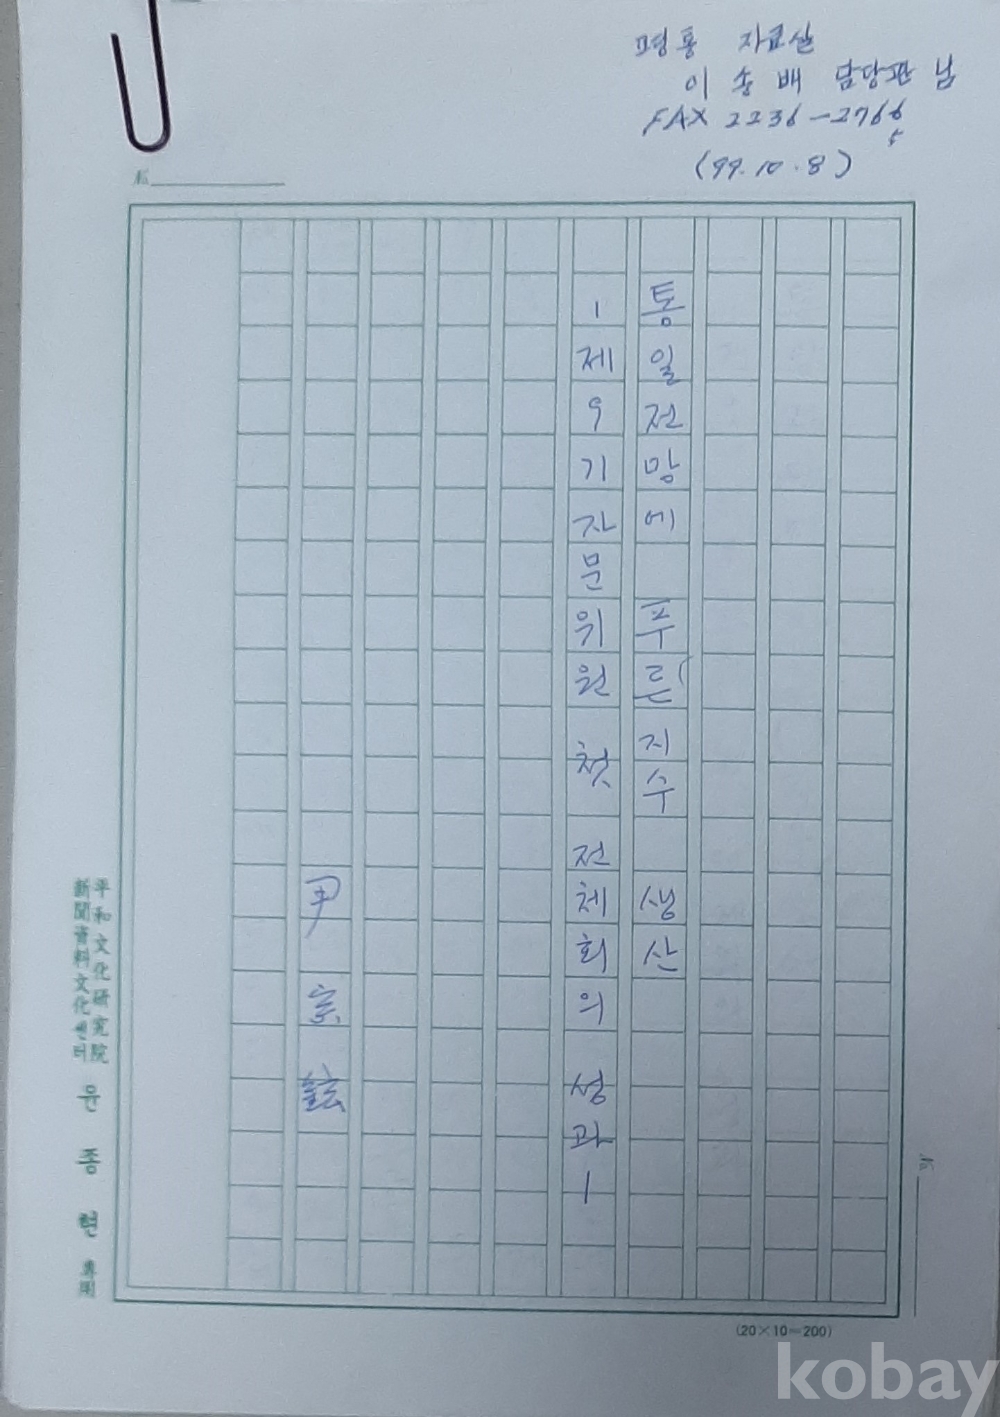 평통 자료실
이송배 담당관님
FAX 2236-2766
5
(99.10.8)
№
통일전망에 푸른 지수 생산
-제9기 자문위원 첫 전체회의 성과-
尹宗鉉
平和文化研究院
新聞資料文化센터
윤종현 專用
№
(20×10=200)
kobay